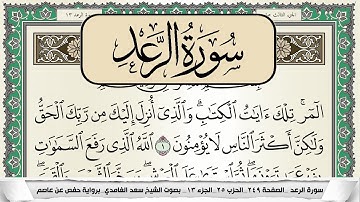 سُورَةُ الرَّعْدِ
الٓمٓرۚ تِلْكَ ءَايَٰتُ ٱلْكِتَٰبِۗ وَٱلَّذِىٓ أُنزِلَ إِلَيْكَ مِن رَّبِّكَ ٱلْحَقُّ
وَلَٰكِنَّ أَكْثَرَ ٱلنَّاسِ لَا يُؤْمِنُونَ ١ ٱللَّهُ ٱلَّذِى رَفَعَ ٱلسَّمَٰوَٰتِ
سورة الرعد _ الصفحة ٢٤٩ _ الحزب ٢٥ _ الجزء ١٣ _ بصوت الشيخ سعد الغامدي _ برواية حفص عن عاصم